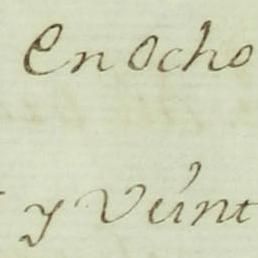 en ocho
y veint